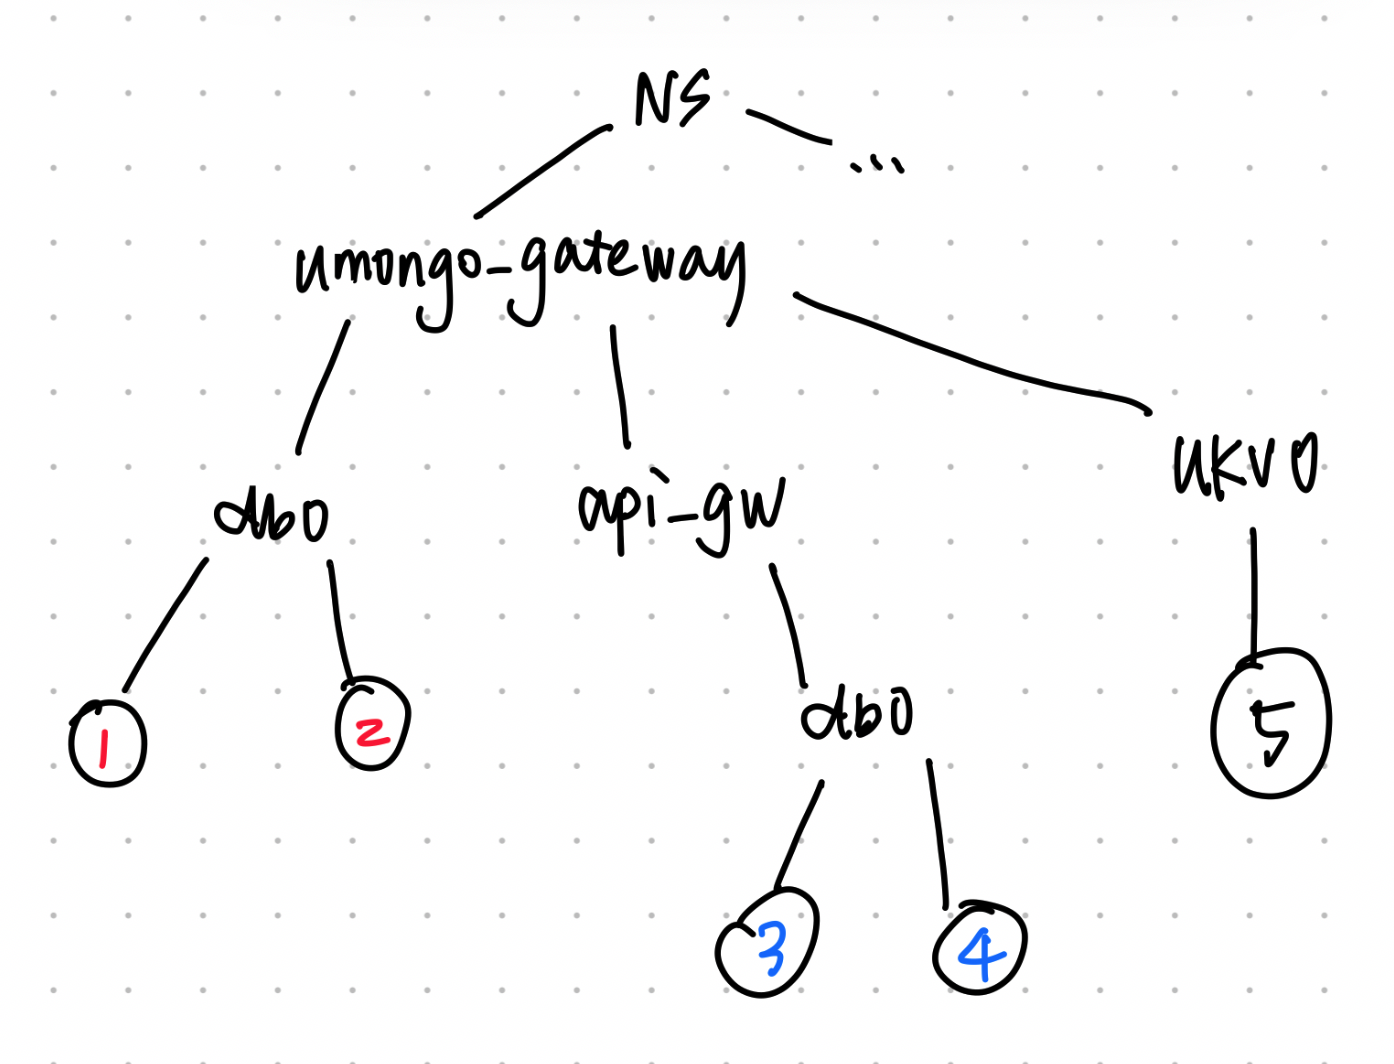 NS
...
umongo_gateway
db0
api_gw
ukv0
1
2
db0
5
3
4